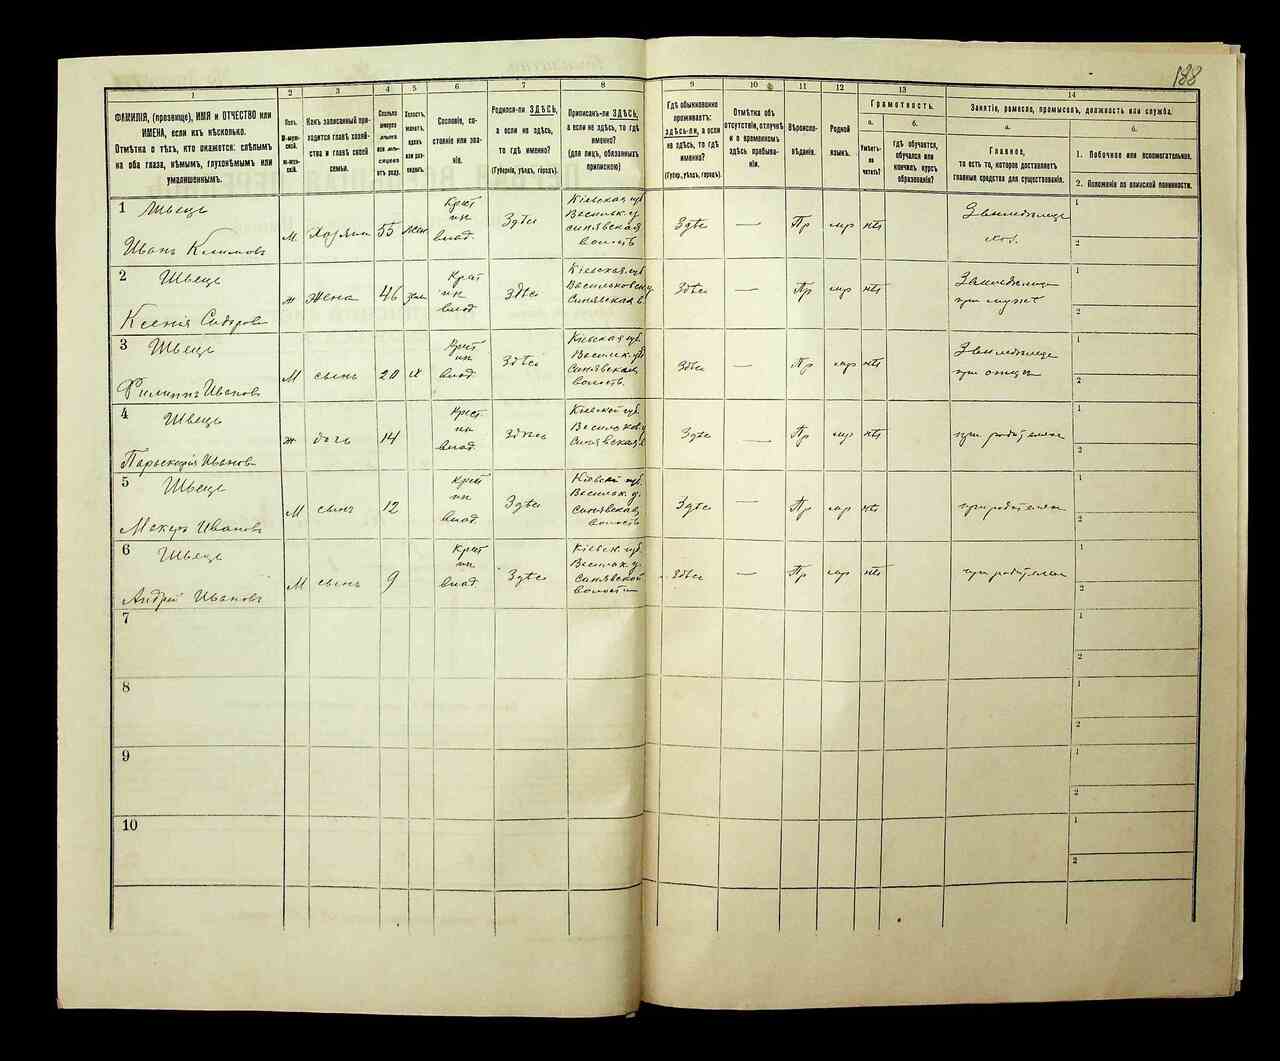 188
1 2 3 4 5 6 7 8 9 10 11 12 13 14
ФАМИЛІЯ, (прозвище), ИМЯ и ОТЧЕСТВО или
ИМЕНА, если ихъ нѣсколько.
Отмѣтка о тѣхъ, кто окажется: слѣпымъ
на оба глаза, нѣмымъ, глухонѣмымъ или
умалишеннымъ.
Полъ.
М-муж-
ской.
Ж-жен-
ской.
Какъ записанный при-
ходится главѣ хозяй-
ства и главѣ своей
семьи.
Сколько
минуло
лѣтъ
или мѣ-
сяцевъ
отъ роду.
Холостъ,
женатъ,
вдовъ
или раз-
веденъ.
Сословіе, со-
стояніе или зва-
ніе.
Родился-ли ЗДѢСЬ,
а если не здѣсь,
то гдѣ именно?
(Губернія, уѣздъ, городъ).
Приписанъ-ли ЗДѢСЬ,
а если не здѣсь, то гдѣ
именно?
(для лицъ, обязанныхъ
припискою)
Гдѣ обыкновенно
проживаетъ:
здѣсь-ли, а если
не здѣсь, то гдѣ
именно?
(Губер., уѣздъ, городъ).
Отмѣтка объ
отсутствіи, отлучкѣ
и о временномъ
здѣсь пребыва-
ніи.
Вѣроиспо-
вѣданіе.
Родной
языкъ.
Грамотность.
а.
Умѣетъ-
ли
читать?
б.
гдѣ обучается,
обучался или
кончилъ курсъ
образованія?
Занятіе, ремесло, промыселъ, должность или служба.
а.
Главное,
то есть то, которое доставляетъ
главныя средства для существованія.
б.
1. Побочное или вспомогательное.
2. Положеніе по воинской повинности.
1 Швецъ
Иванъ Климовъ
М Хозяинъ 55 жен
Крест
ин
влад.
Здѣсь
Кіевская губ
Васильк. у.
Синявская
волость
Здѣсь — Пр мр нѣтъ
Земледѣлецъ
хоз.
1
2
2 Швецъ
Ксенія Сидорова
ж Жена 46 зам
Крест
ин
влад
Здѣсь
Кіевская губ
Васильковск у
Синявская в
Здѣсь — Пр мр нѣтъ
Земледѣлица
при мужѣ
1
2
3 Швецъ
Филиппъ Ивановъ
М сынъ 20 хол
Крест
ин
влад
Здѣсь
Кіевская губ.
Васильк. у
Синявская
волость.
Здѣсь — Пр мр нѣтъ
Земледѣлецъ
при отцѣ
1
2
4 Швецъ
Параскефія Иванов
ж дочь 14
Крест
ин
влад.
Здѣсь
Кіевской губ.
Васильков у
Синявская в
Здѣсь — Пр мр нѣтъ
при родителяхъ
1
2
5 Швецъ
Макаръ Ивановъ
М сынъ 12
Крест
ин
влад.
Здѣсь
Кіевской губ.
Васильк. у.
Синявская
волость
Здѣсь — Пр мр нѣтъ
при родителяхъ
1
2
6 Швецъ
Андрей Ивановъ
М сынъ 9
Крест
ин
влад.
Здѣсь
Кіевск. губ.
Васильк. у.
Синявской
волости
Здѣсь — Пр мр нѣтъ
при родителяхъ
1
2
7
1
2
8
1
2
9
1
2
10
1
2